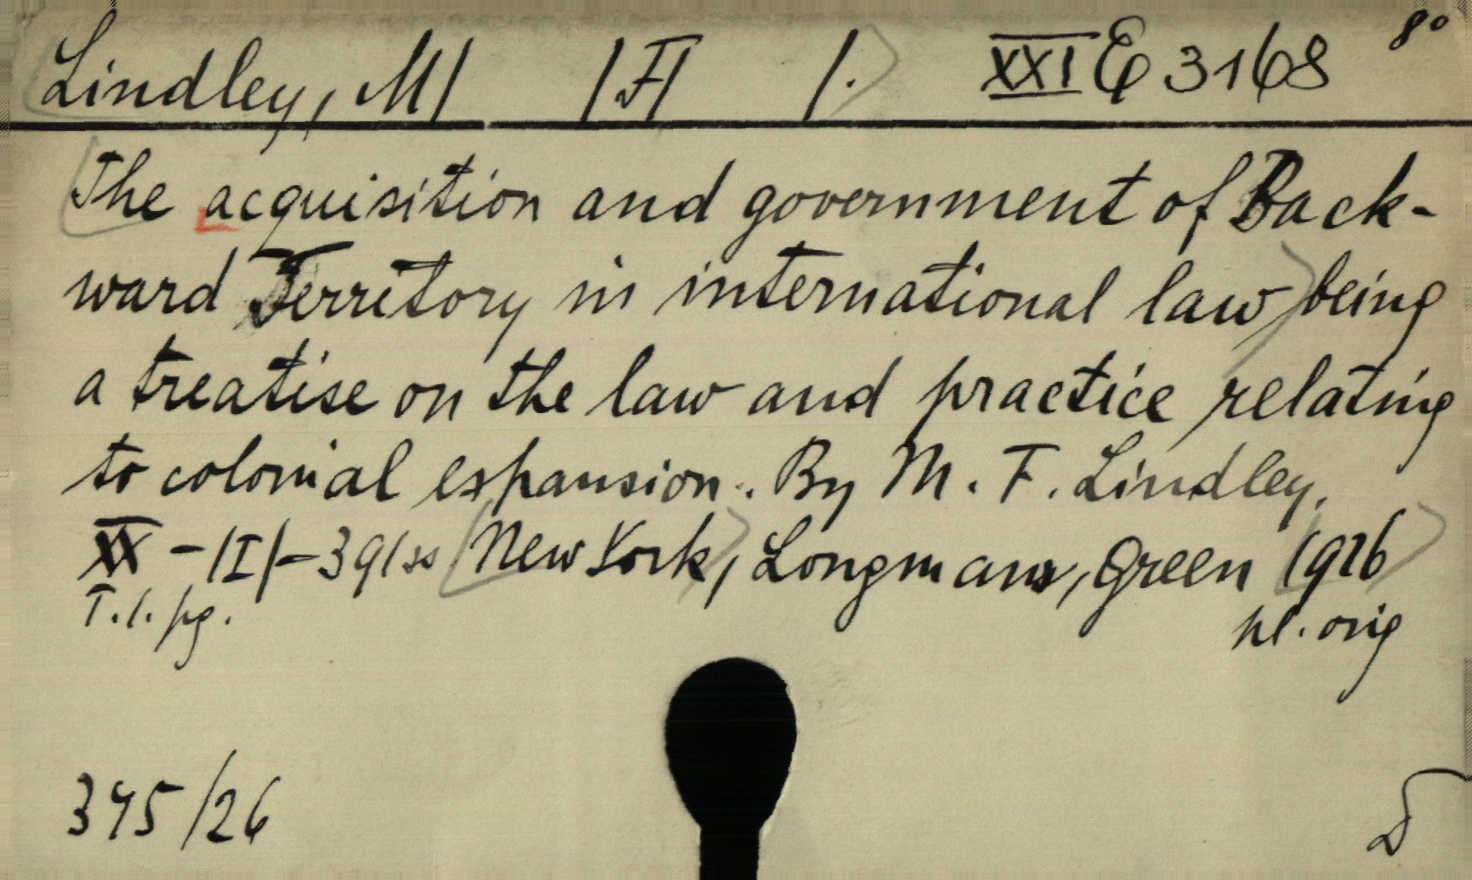 Lindley, M/ /F/ /. XXI E 3168 8°
The acquisition and government of Back-
ward Territory in international law being
a treatise on the law and practice relating
to colonial expansion. By M. F. Lindley.
XX - /I/ - 391 ss New York, Longmans, Green 1926
T. l. pg. pl. orig
395/26